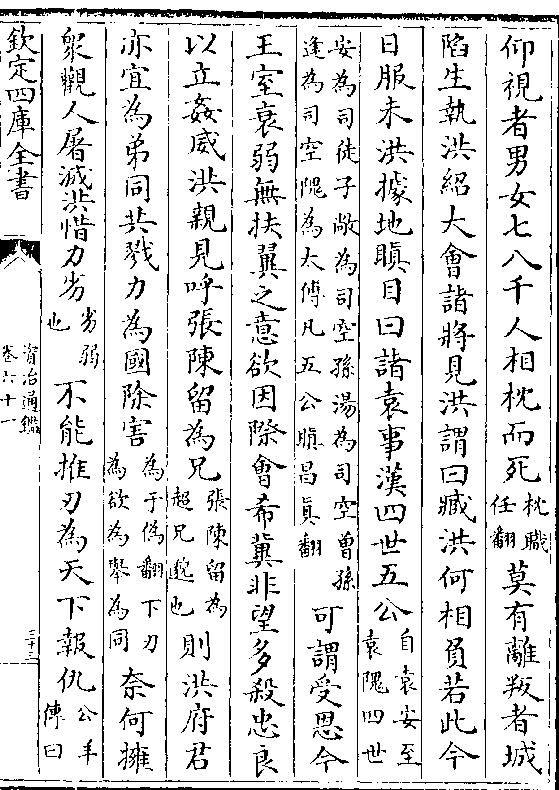 仰視者男女七八千人相枕而死枕職任翻莫有離叛者城
陷生執洪紹大會諸將見洪謂曰臧洪何相負若此今
日服未洪據地瞋目曰諸袁事漢四世五公自袁安至袁隗四世
安為司徒子敞為司空孫湯為司空曾孫逢為司空隗為太傅凡五公瞋昌真翻可謂受恩今
王室衰弱無扶翼之意欲因際會希冀非望多殺忠良
以立姦威洪親見呼張陳留為兄張陳留為超兄邈也則洪府君
亦宜為弟同共戮力為國除害為于偽翻下刃為欲為舉為同奈何擁
衆觀人屠滅洪惜力劣劣弱也不能推刃為天下報仇公羊傳曰
欽定四庫全書
資治通鑑
卷六十一
三十三